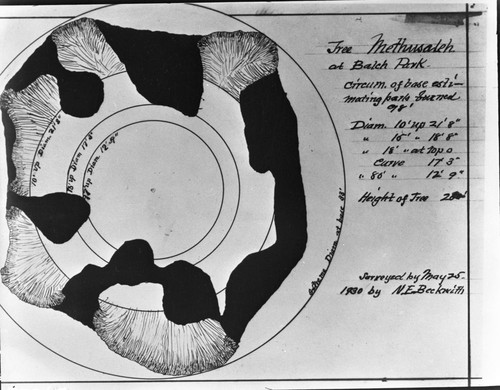 Tree Methusaleh
at Balch Park
Circum. of base esti-
mating parts burned
98'
Diam. 10' up 21' 8"
" 16' " 18' 8"
" 18' " at top o
Curve 17' 3"
" 80' " 12' 9"
Height of Tree
Surveyed by May 25-
1930 by N.E. Beckwith
10' up Diam 21' 8"
16' up Diam 18' 8"
up Diam 12' 9"
Extreme Diam at base